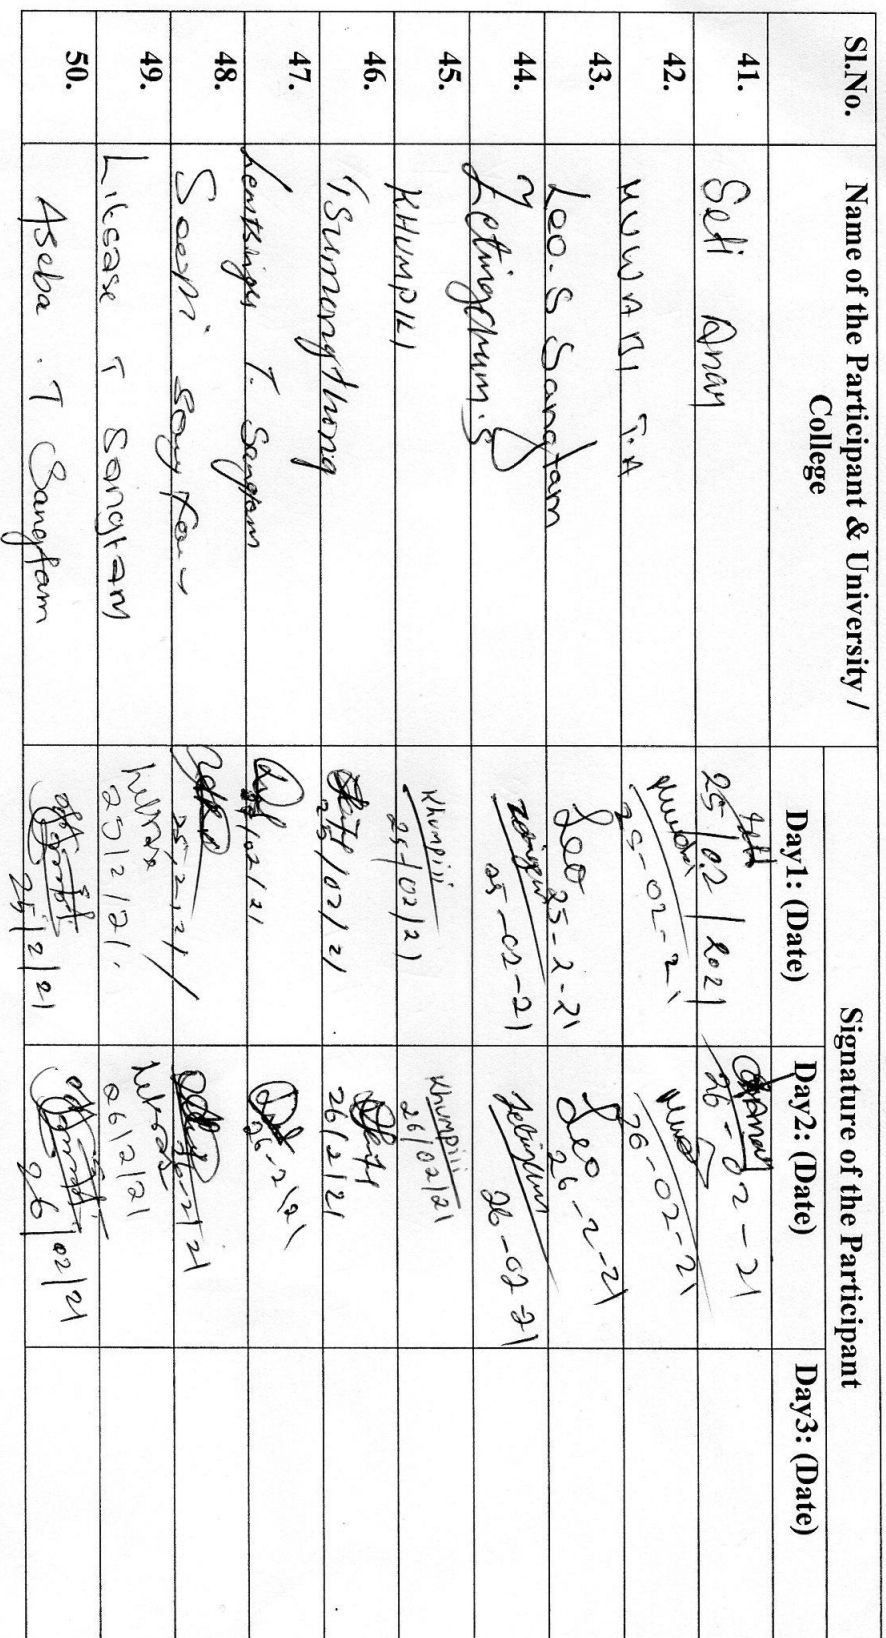 Sl.No. Name of the Participant & University / College Signature of the Participant
Day1: (Date) Day2: (Date) Day3: (Date)
41. Seli Anar 25/02/2021 26-02-21
42. MUWABI T.A 25-02-21 26-02-21
43. Leo. S Sangtam Leo 25-2-21 Leo 26-2-21
44. Zetingchum.S 25-02-21 26-02-21
45. KHUMPILI Khumpili 25/02/21 Khumpili 26/02/21
46. Tsumongthong 25/02/21 26/2/21
47. T. Sangtam /02/21 26-2-21
48. 25,2,21 26-2-21
49. Litsase T Sangtam 25/2/21. 26/2/21
50. Aseba . T Sangtam 25/2/21 26/02/21